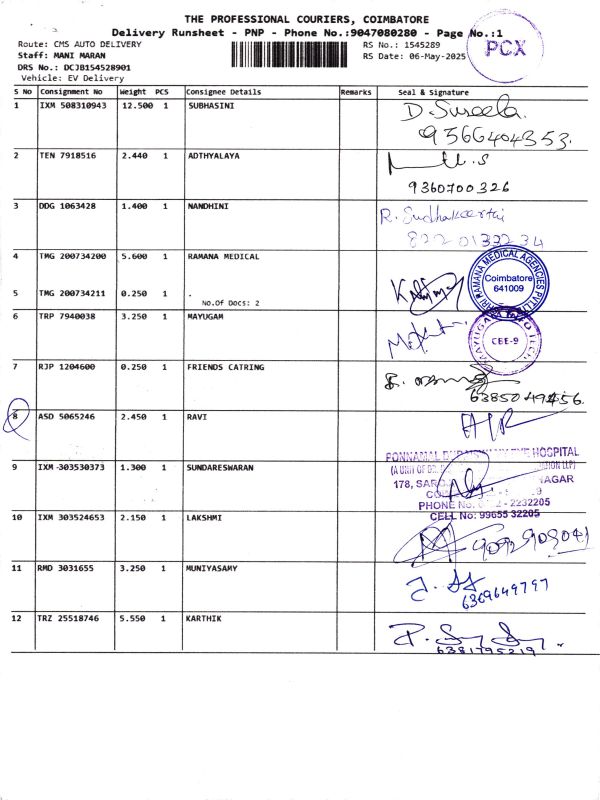 THE PROFESSIONAL COURIERS, COIMBATORE
Delivery Runsheet - PNP - Phone No.:9047080280 - Page No.:1
Route: CMS AUTO DELIVERY
RS No.: 1545289
PCX
Staff: MANI MARAN
RS Date: 06-May-2025
DRS No.: DCJB154528901
Vehicle: EV Delivery
S No Consignment No Weight PCS Consignee Details Remarks Seal & Signature
1 IXM 508310943 12.500 1 SUBHASINI D. Suseela.
9566404353.
2 TEN 7918516 2.440 1 ADTHYALAYA
9360700326
3 DDG 1063428 1.400 1 NANDHINI R. Sudhakeerthi
822 0133234
4 TMG 200734200 5.600 1 RAMANA MEDICAL
RAMANA MEDICAL AGENCIES PVT LTD
Coimbatore
641009
5 TMG 200734211 0.250 1 .
No.Of Docs: 2
6 TRP 7940038 3.250 1 MAYUGAM
CBE-9
7 RJP 1204600 0.250 1 FRIENDS CATRING
6385049456.
8 ASD 5065246 2.450 1 RAVI
PONNAMAL EYE HOSPITAL
(A UNIT OF
178, NAGAR
9 IXM 303530373 1.300 1 SUNDARESWARAN
PHONE No. 2232205
CELL No: 99655 32205
10 IXM 303524653 2.150 1 LAKSHMI
9092909041
11 RMD 3031655 3.250 1 MUNIYASAMY
6369649797
12 TRZ 25518746 5.550 1 KARTHIK
6381795219